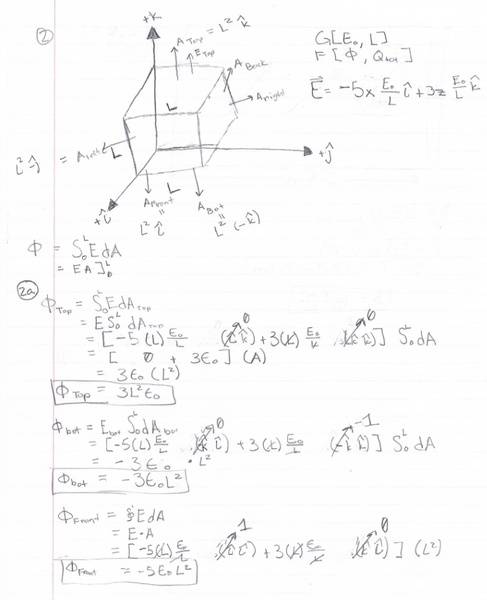 ②
+k̂
A_Top = L² k̂
E_Top
A_Back
A_right
L
L
L
+ĵ
+î
A_Front = L² î
A_Bot = L² (-k̂)
G[E₀, L]
F = [Φ, Q_tot]
E⃗ = -5x E₀/L î + 3z E₀/L k̂
Φ = S₀ᴸ E dA
= EA ]₀ᴸ
②a
Φ_Top = S₀ᴸ E dA_Top
= E S₀ᴸ dA_Top
= [-5(L) E₀/L (k̂ î) 0 + 3(L) E₀/L (k̂ k̂) 0] S₀ᴸ dA
= [ 0 + 3E₀ ] (A)
= 3E₀ (L²)
Φ_Top = 3L² E₀
Φ_bot = E_bot S₀ᴸ dA_bot
= [-5(L) E₀/L (k̂ î) 0 + 3(L) E₀/L (-k̂ k̂) -1] S₀ᴸ dA
= -3E₀ · L²
Φ_bot = -3E₀L²
Φ_Front = S E dA
= E · A
= [-5(L) E₀/L (î î) 1 + 3(L) E₀/L (k̂ î) 0] (L²)
Φ_Front = -5E₀L²